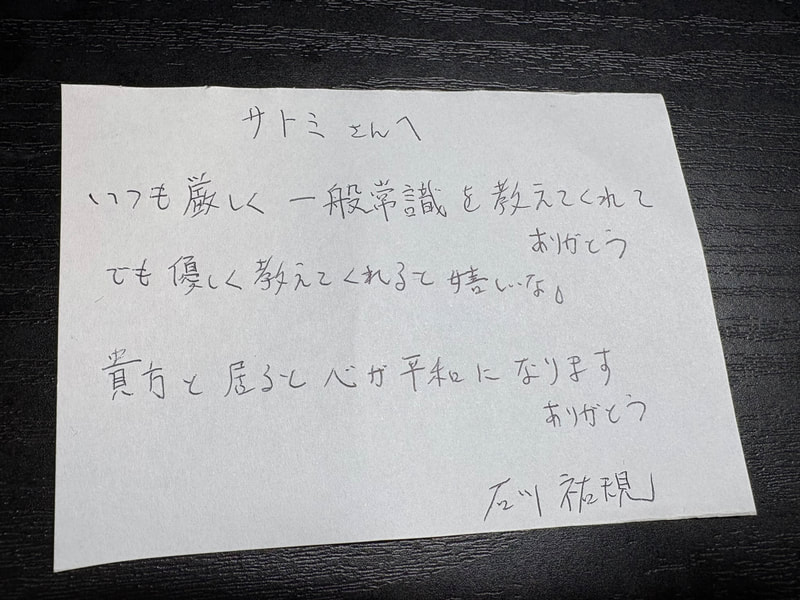 サトミさんへ
いつも厳しく一般常識を教えてくれて
ありがとう
でも優しく教えてくれると嬉しいな。
貴方と居ると心が平和になります
ありがとう
石川 祐規